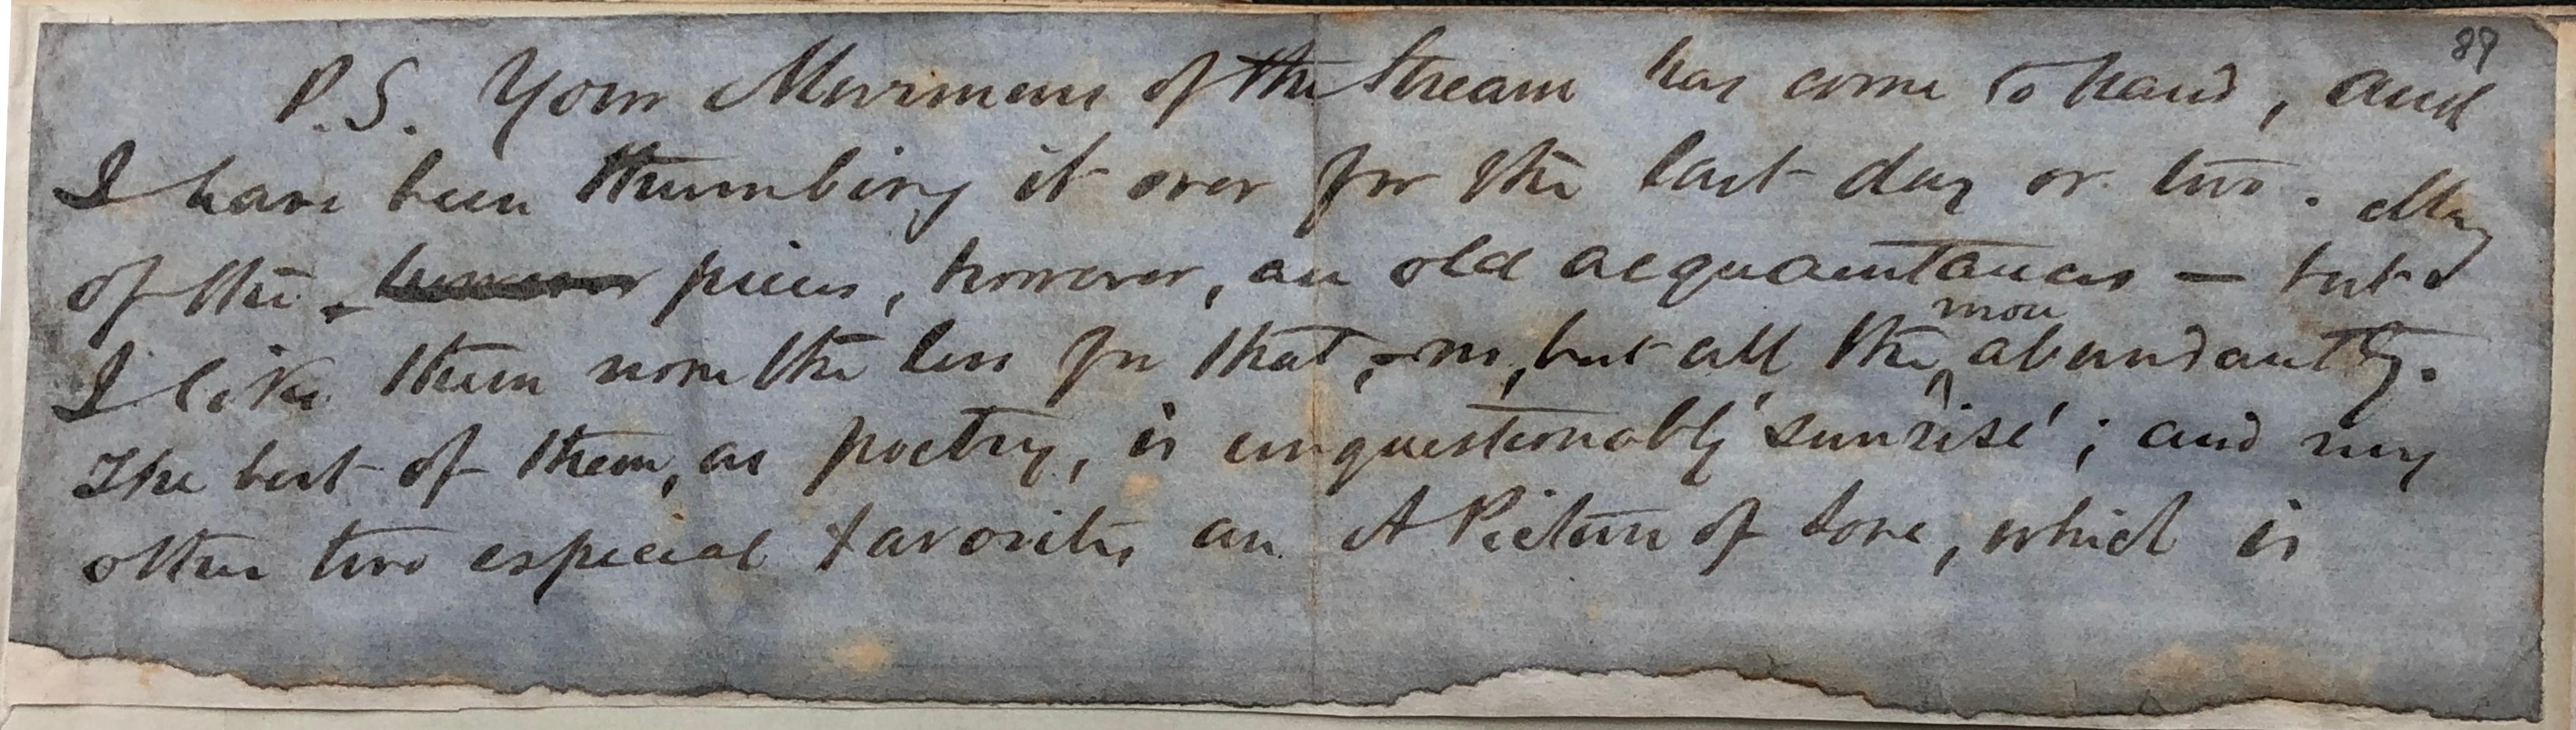 89
P.S. Your Murmurs of the Stream has come to hand, and
I have been thumbing it over for the last day or two. Many
of the pieces, however, are old acquaintances — but
I like them none the less for that, — no, but all the more abundantly.
The best of them, as poetry, is unquestionably 'Sunrise'; and my
other two especial favorites are A Picture of Love, which is